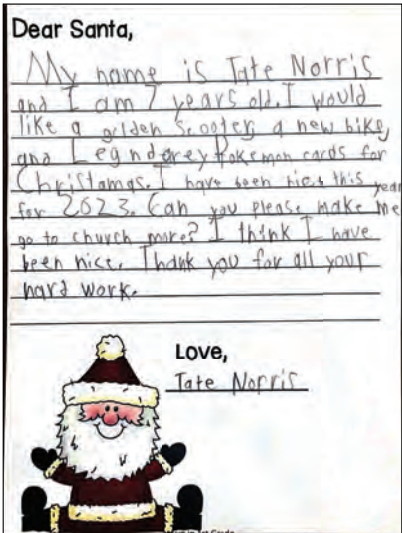 Dear Santa,
My name is Tate Norris
and I am 7 years old. I would
like a golden scooter, a new bike,
and Legndarey Pokemon cards for
Christamas. I have been nice this year
for 2023. Can you please make me
go to church more? I think I have
been nice. Thank you for all your
hard work.
Love,
Tate Norris